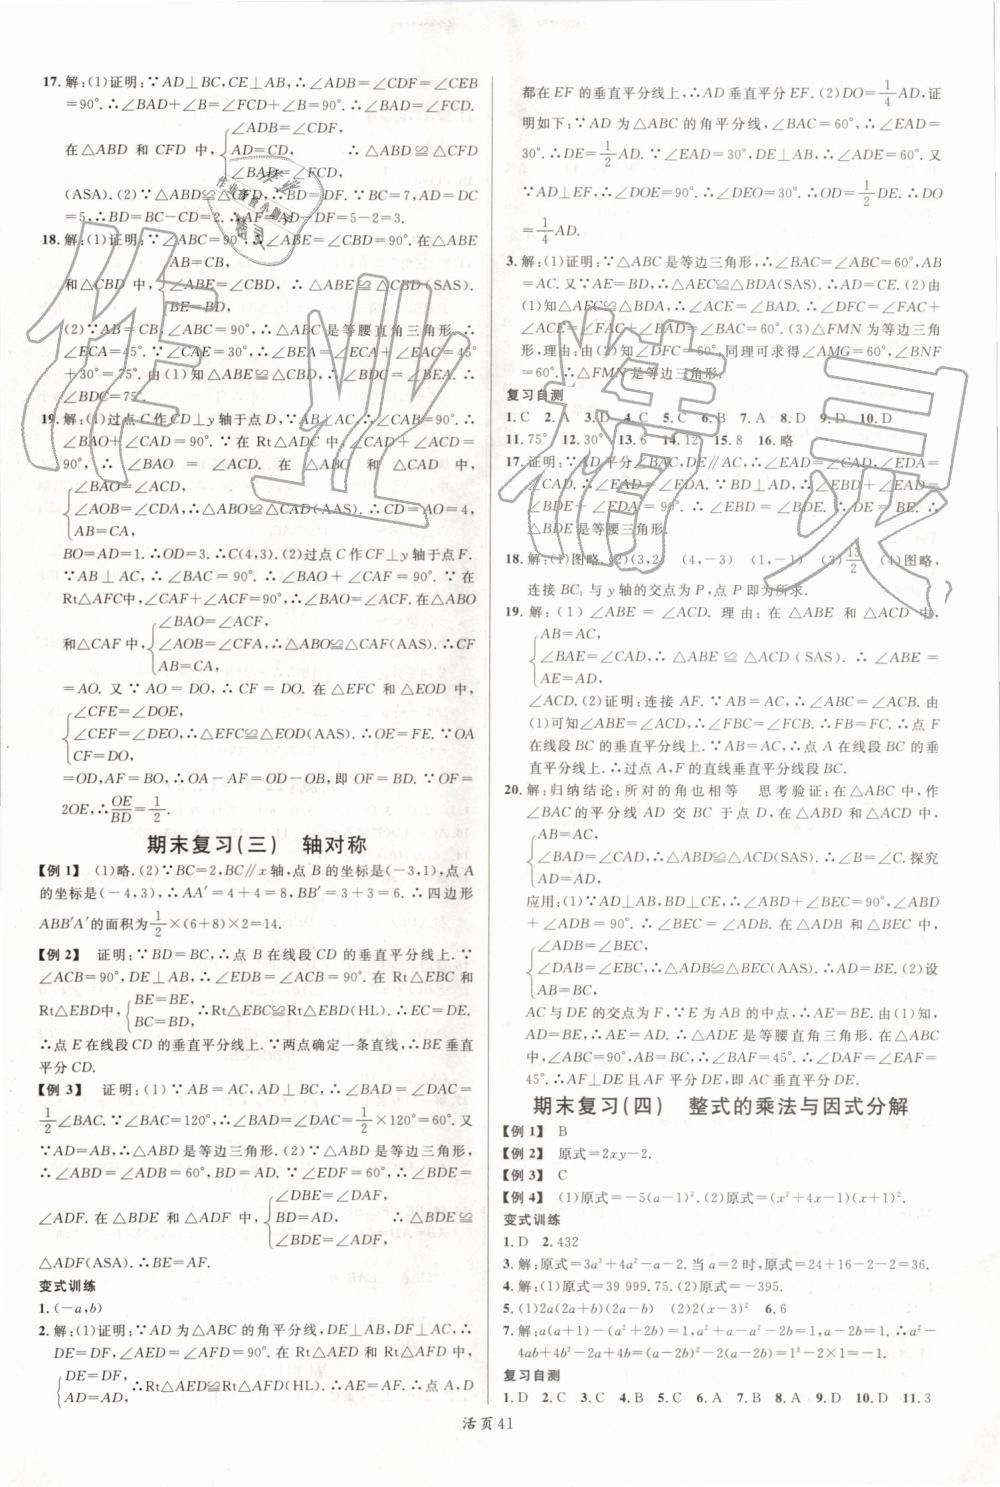 17.解:(1)证明:∵AD⊥BC,CE⊥AB,∴∠ADB=∠CDF=∠CEB
=90°.∴∠BAD+∠B=∠FCD+∠B=90°.∴∠BAD=∠FCD.
∠ADB=∠CDF,
在△ABD 和 CFD 中,{AD=CD, ∴△ABD≌△CFD
∠BAD=∠FCD,
(ASA).(2)∵△ABD≌△CFD,∴BD=DF.∵BC=7,AD=DC
=5,∴BD=BC-CD=2.∴AF=AD-DF=5-2=3.
18.解:(1)证明:∵∠ABC=90°,∴∠ABE=∠CBD=90°.在△ABE
AB=CB,
和△CBD 中,{∠ABE=∠CBD,∴△ABE≌△CBD(SAS).
BE=BD,
(2)∵AB=CB,∠ABC=90°,∴△ABC是等腰直角三角形.∴
∠ECA=45°.∵∠CAE=30°,∴∠BEA=∠ECA+∠EAC=45°
+30°=75°.由(1)知△ABE≌△CBD,∴∠BDC=∠BEA.∴
∠BDC=75°.
19.解:(1)过点C作CD⊥y轴于点D,∵AB⊥AC,∴∠CAD+
∠BAO=∠CAD+∠ACD=90°.∴∠BAO=∠ACD.
∠BAO+∠CAD=90°.在Rt△ACD中,∠ACD+∠CAD=
90°.∴∠BAO=∠ACD.在△ABO和△CAD中,
∠BAO=∠ACD,
{∠AOB=∠CDA,∴△ABO≌△CAD(AAS).∴CD=AO=4,
AB=CA,
BO=AD=1.∴OD=3.∴C(4,3).(2)过点C作CF⊥y轴于点F.
∵AB⊥AC,∴∠BAC=90°,∴∠BAO+∠CAF=90°.∵在
Rt△AFC中,∠CAF+∠ACF=90°.∴∠BAO=∠ACF.在△ABO
∠BAO=∠ACF,
和△CAF 中,{∠AOB=∠CFA,∴△ABO≌△CAF(AAS).∴CF
AB=CA,
=AO.又∵AO=DO,∴CF=DO.在△EFC和△EOD中,
∠CFE=∠DOE,
{∠CEF=∠DEO,∴△EFC≌△EOD(AAS).∴OE=FE.∵OA
CF=DO,
=OD,AF=BO,∴OA-AF=OD-OB,即 OF=BD.∵OF=
2OE,∴OE/BD=1/2.
期末复习(三) 轴对称
【例1】(1)略.(2)∵BC=2,BC∥x轴,点B的坐标是(-3,1),点A
的坐标是(-4,3),∴AA′=4+4=8,BB′=3+3=6.∴四边形
ABB′A′的面积为1/2×(6+8)×2=14.
【例2】 证明:∵BD=BC,∴点B在线段CD的垂直平分线上.∵
∠ACB=90°,DE⊥AB,∴∠EDB=∠ACB=90°.在Rt△EBC和
Rt△EBD中,{BE=BE, BC=BD,∴Rt△EBC≌Rt△EBD(HL).∴EC=DE.
∴点E在线段CD的垂直平分线上.∵两点确定一条直线,∴BE垂直
平分CD.
【例3】 证明:(1)∵AB=AC,AD⊥BC,∴∠BAD=∠DAC=
1/2∠BAC.∵∠BAC=120°,∴∠BAD=1/2×120°=60°.又
∵AD=AB,∴△ABD是等边三角形.(2)∵△ABD是等边三角形,
∴∠ABD=∠ADB=60°,BD=AD.∵∠EDF=60°,∴∠BDE=
∠DBE=∠DAF,
∠ADF.在△BDE和△ADF中,{BD=AD, ∴△BDE≌
∠BDE=∠ADF,
△ADF(ASA).∴BE=AF.
变式训练
1.(-a,b)
2.解:(1)证明:∵AD为△ABC的角平分线,DE⊥AB,DF⊥AC,∴
DE=DF,∠AED=∠AFD=90°.在Rt△AED和Rt△AFD中,
{DE=DF, AD=AD,∴Rt△AED≌Rt△AFD(HL).∴AE=AF.∴点A,D
都在EF的垂直平分线上,∴AD垂直平分EF.(2)DO=1/4AD,证
明如下:∵AD为△ABC的角平分线,∠BAC=60°,∴∠EAD=
30°.∴DE=1/2AD.∵∠EAD=30°,∴∠EDA=60°.又
∵AD⊥EF,∴∠DOE=90°.∴∠DEO=30°.∴OD=1/2DE.∴DO
=1/4AD.
3.解:(1)证明:∵△ABC是等边三角形,∴∠BAC=∠ABC=60°,AB
=AC.又∵AE=BD,∴△AEC≌△BDA(SAS).∴AD=CE.(2)由
(1)知△AEC≌△BDA,∴∠ACE=∠BAD.∴∠DFC=∠FAC+
∠ACE=∠FAC+∠BAD=∠BAC=60°.(3)△FMN为等边三角
形,理由:由(2)知∠DFC=60°,同理可求得∠AMB=60°,∠BNF
=60°.∴△FMN是等边三角形.
复习自测
1.C 2.A 3.D 4.C 5.C 6.B 7.A 8.D 9.D 10.D
11.75° 12.30° 13.6 14.12 15.8 16.略
17.证明:∵AD平分∠BAC,DE∥AC,∴∠EAD=∠CAD,∠EDA=
∠CAD.∴∠EAD=∠EDA.∵BD⊥AD,∴∠EBD+∠EAD=
∠BDE+∠EDA=90°.∴∠EBD=∠BDE.∴DE=BE.∴
△BDE是等腰三角形.
18.解:(1)图略.(2)(3,2) (4,-3) (1,-1) (3)13/2 (4)图略,
连接BC₁与y轴的交点为P,点P即为所求.
19.解:(1)∠ABE=∠ACD.理由:在△ABE和△ACD中,
AB=AC,
{∠BAE=∠CAD,∴△ABE≌△ACD(SAS).∴∠ABE=
AE=AD,
∠ACD.(2)证明:连接AF.∵AB=AC,∴∠ABC=∠ACB.由
(1)可知∠ABE=∠ACD,∴∠FBC=∠FCB.∴FB=FC.∴点F
在线段BC的垂直平分线上.∵AB=AC,∴点A在线段BC的垂
直平分线上.∴过点A,F的直线垂直平分线段BC.
20.解:归纳结论:所对的角也相等 思考验证:在△ABC中,
作∠BAC的平分线AD交BC于点D,在△ABD和△ACD中,
AB=AC,
{∠BAD=∠CAD,∴△ABD≌△ACD(SAS).∴∠B=∠C.探究
AD=AD,
应用:(1)∵AD⊥AB,BD⊥EC,∴∠CBD+∠BEC=90°,∠CBD
+∠ADB=90°.∴∠BEC=∠ADB.在△ADB和△BEC中,
∠ADB=∠BEC,
{∠DAB=∠EBC,∴△DAB≌△EBC(AAS).∴DA=BE.(2)设
AB=BC,
AC与DE的交点为F,∵E为AB的中点,∴AE=BE.由(1)知,
AD=BE,∴AE=AD.∴△ADE是等腰直角三角形.在△ABC
中,∵AB=BC,∠ABC=90°,∴∠BAF=45°.∴∠DAF=∠EAF=
45°.∴AF⊥DE且AF平分DE,即AC垂直平分DE.
期末复习(四) 整式的乘法与因式分解
【例1】 B
【例2】 原式=2xy-2.
【例3】 C
【例4】 (1)原式=-5(a-1)².(2)原式=(x²+4x-1)(x+1)².
变式训练
1.D 2.432
3.解:原式=3a³+4a²-a-2.当a=2时,原式=24+16-2-2=36.
4.解:(1)原式=39 999.75.(2)原式=-395.
5.(1)2a(2a+b)(2a-b) (2)2(x-1)² 6.6
7.解:a(a+1)-(a²+2b)=1,a²+a-a²-2b=1,a-2b=1.∴a²-
4ab+4b²-2a+4b=(a-2b)²-2(a-2b)=1²-2×1=-1.
复习自测
1.D 2.C 3.C 4.D 5.A 6.A 7.B 8.A 9.C 10.D 11.3
活页41
作业精灵